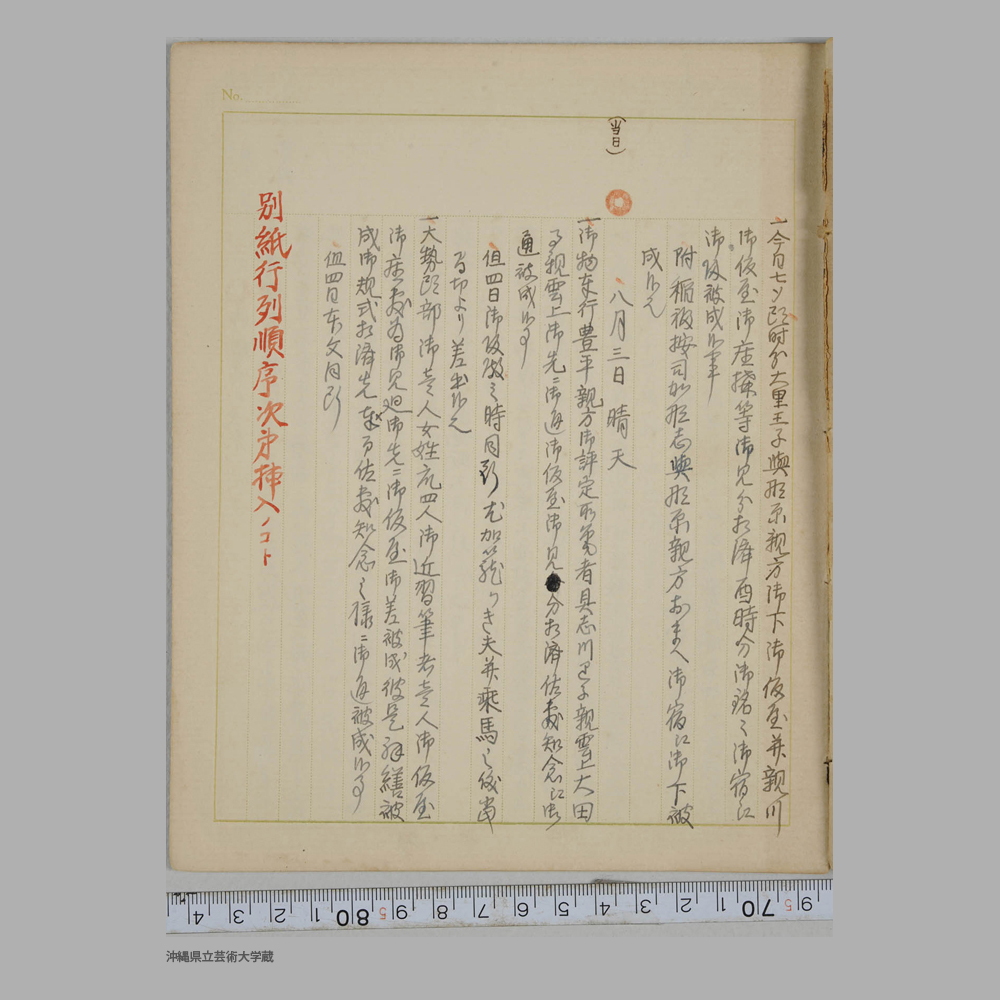 No.
一今日七ツ頃時分大里王子與那原親方御下御仮屋并親川
御仮屋御座構等御見分相済酉時分御銘々御宿江
御帰被成候事
附稲福按司加那志與那原親方おまへ御宿江御下被
成候也
八月三日 晴天
(当日)
一御物奉行豊平親方御評定所筆者具志川里之子親雲上大田
親雲上御先ニ御通御仮屋御見分相済佐敷知念江御
通被成候事
但四日御帰敷之時同断尤加籠かき夫并乗馬之儀当
方より差出候也
一大勢頭部御壱人女姓衆四人御近習筆者壱人御仮屋
御座敷為御見廻御先ニ御仮屋御差被成彼是御繕被
成御規式相済先佐敷知念之様ニ御通被成候事
但四日本文同断
別紙行列順序次第挿入ノコト
4 3 2 1 80 9 8 7 6 5 4 3 2 1 70 9
沖縄県立芸術大学蔵